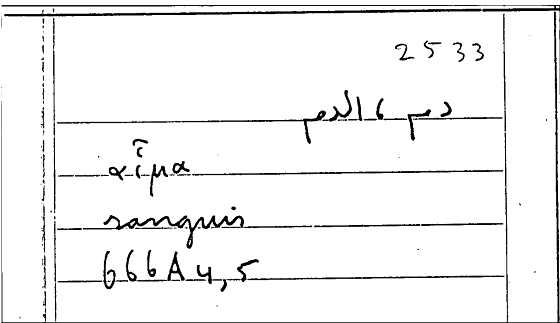 2533
دم ، الدم
αἷμα
sanguis
666A4,5